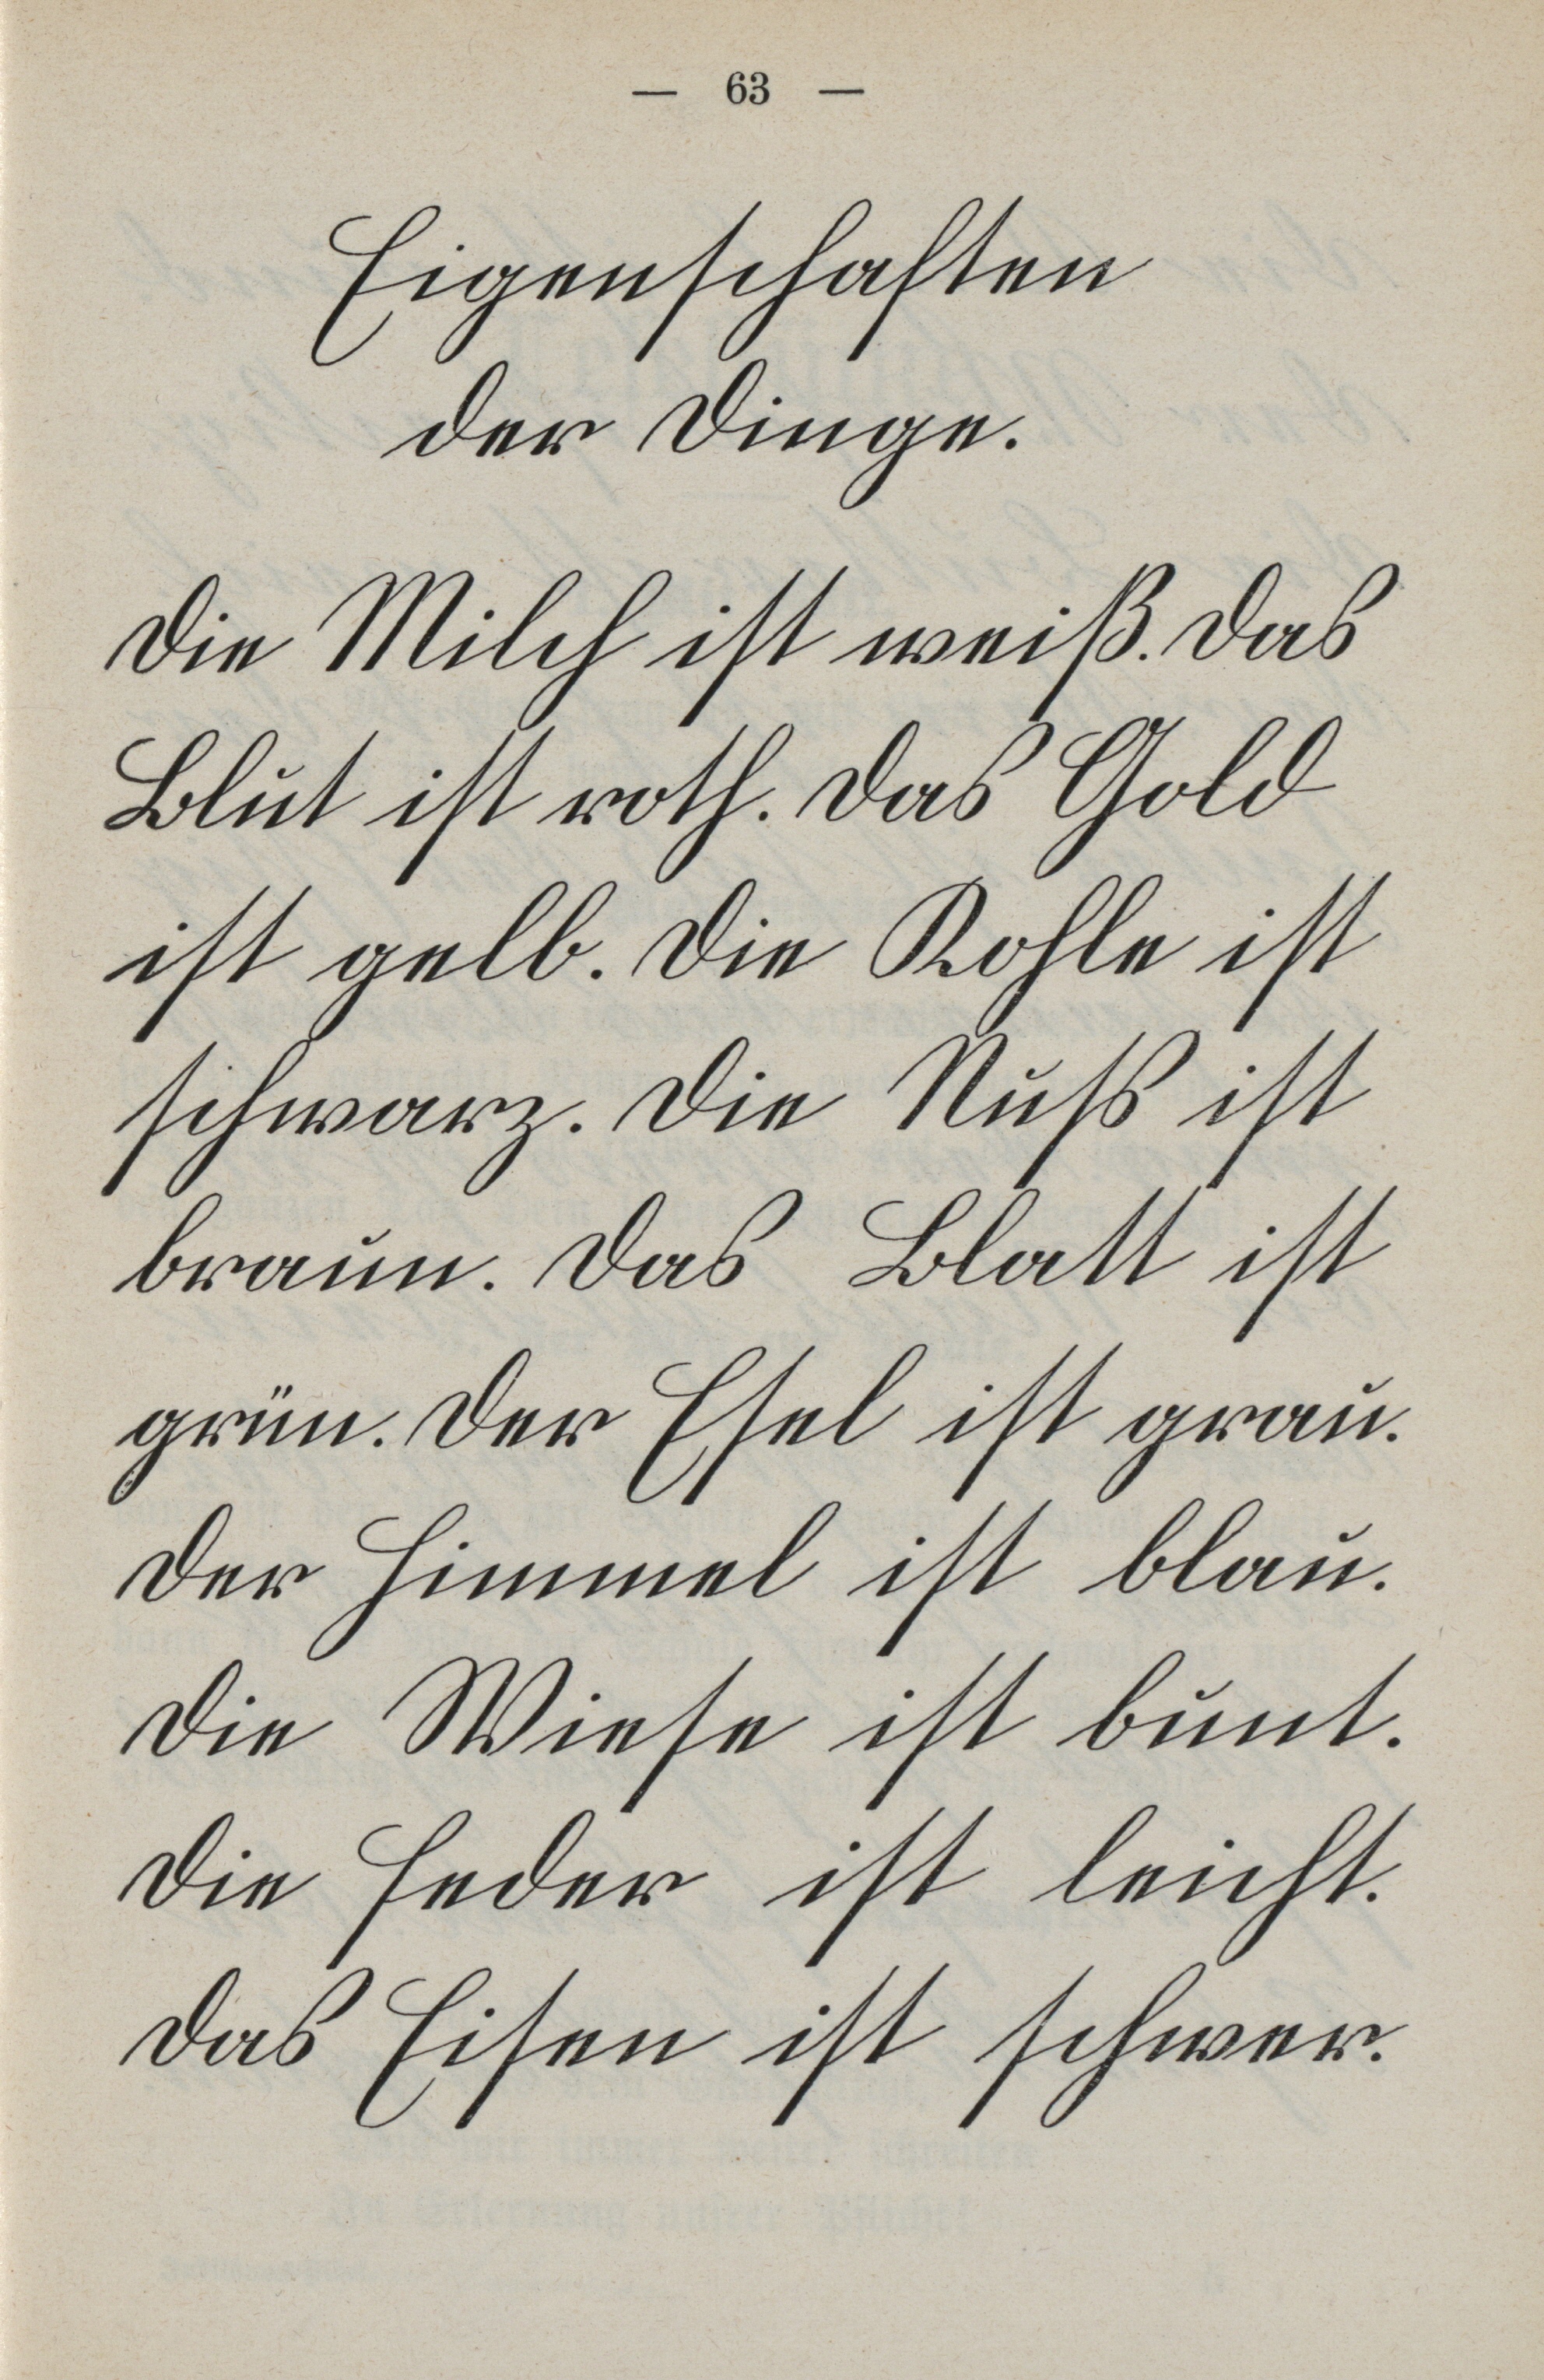 — 63 —
Eigenschaften
der Dinge.
Die Milch ist weiß. Das
Blut ist roth. Das Gold
ist gelb. Die Kohle ist
schwarz. Die Nuss ist
braun. Das Blatt ist
grün. Der Esel ist grau.
Der Himmel ist blau.
Die Wiese ist bunt.
Die Feder ist leicht.
Das Eisen ist schwer.